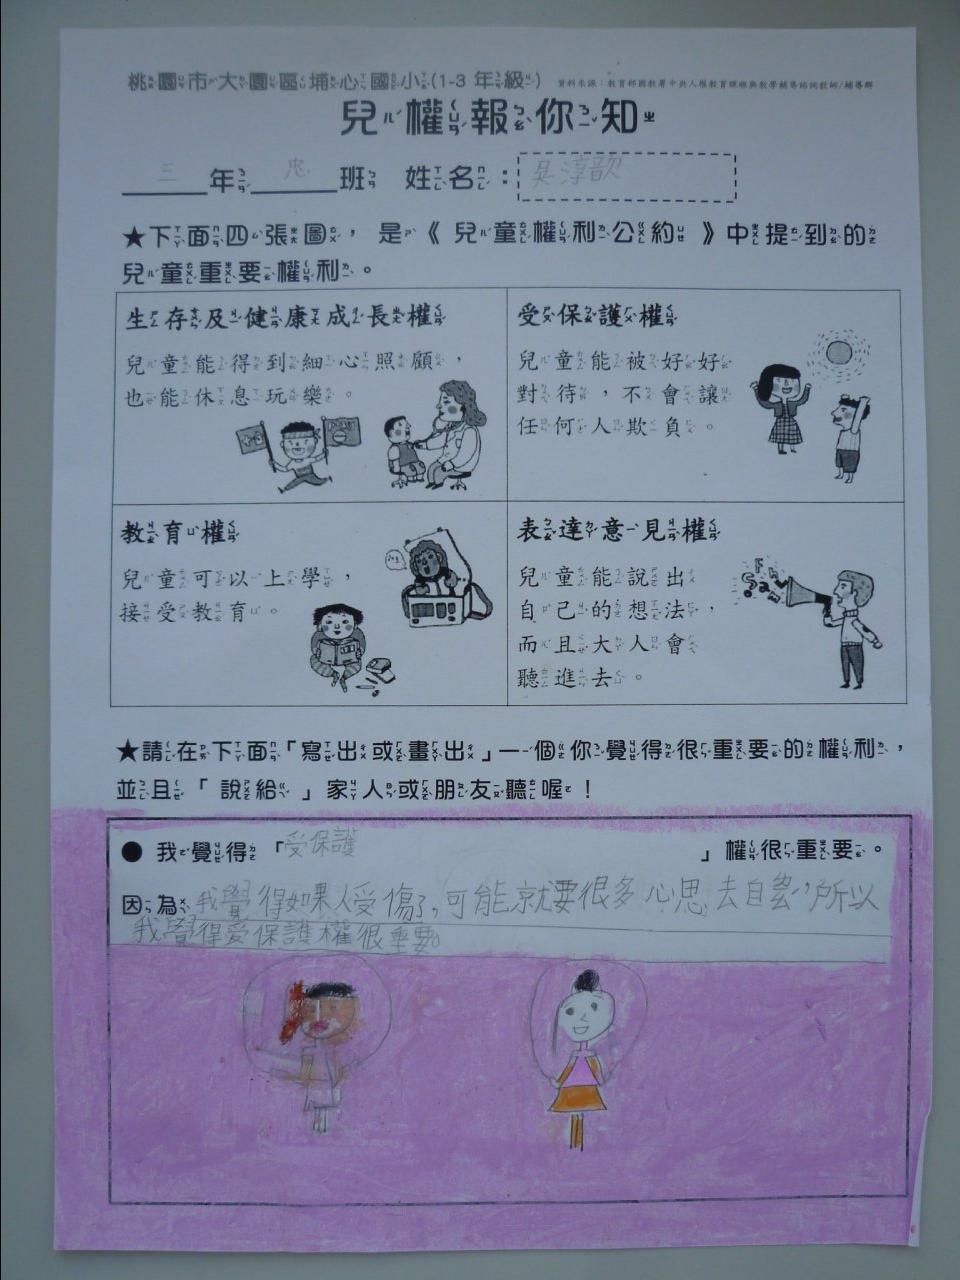 桃園市大園區埔心國小(1-3年級) 資料來源：教育部國教署中央人權教育課程與教學輔導諮詢教師/輔導群
兒權報你知
三年忠班 姓名：吳淳歆
★下面四張圖，是《兒童權利公約》中提到的
兒童重要權利。
生存及健康成長權
兒童能得到細心照顧，
也能休息玩樂。
受保護權
兒童能被好好
對待，不會讓
任何人欺負。
教育權
兒童可以上學，
接受教育。
表達意見權
兒童能說出
自己的想法，
而且大人會
聽進去。
★請在下面「寫出或畫出」一個你覺得很重要的權利，
並且「說給」家人或朋友聽喔！
●我覺得「受保護」權很重要。
因為我覺得如果人受傷了，可能就要很多心思去自，所以
我覺得受保護權很重要。